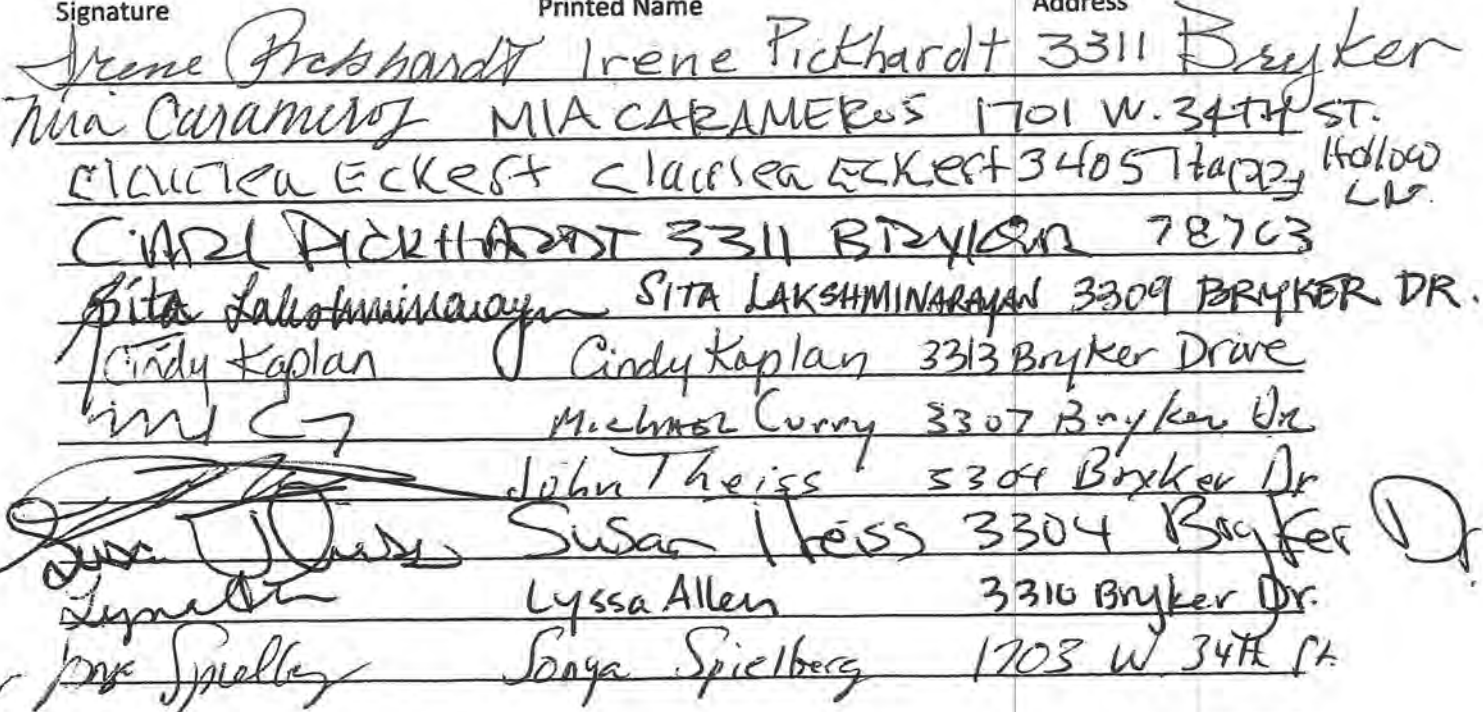 Signature Printed Name Address
Irene Pickhardt Irene Pickhardt 3311 Bryker
Mia Carameros MIA CARAMEROS 1701 W. 34TH ST.
Eckert Eckert 3405 Happy Hollow LN.
CARL PICKHARDT 3311 BRYKER 78703
Sita Lakshminarayan SITA LAKSHMINARAYAN 3309 BRYKER DR.
Cindy Kaplan Cindy Kaplan 3313 Bryker Drive
Michael Curry 3307 Bryker Dr
John Theiss 3304 Bryker Dr
Susan Theiss 3304 Bryker Dr
Lyssa Allen 3310 Bryker Dr.
Sonya Spielberg Sonya Spielberg 1703 W 34th St.